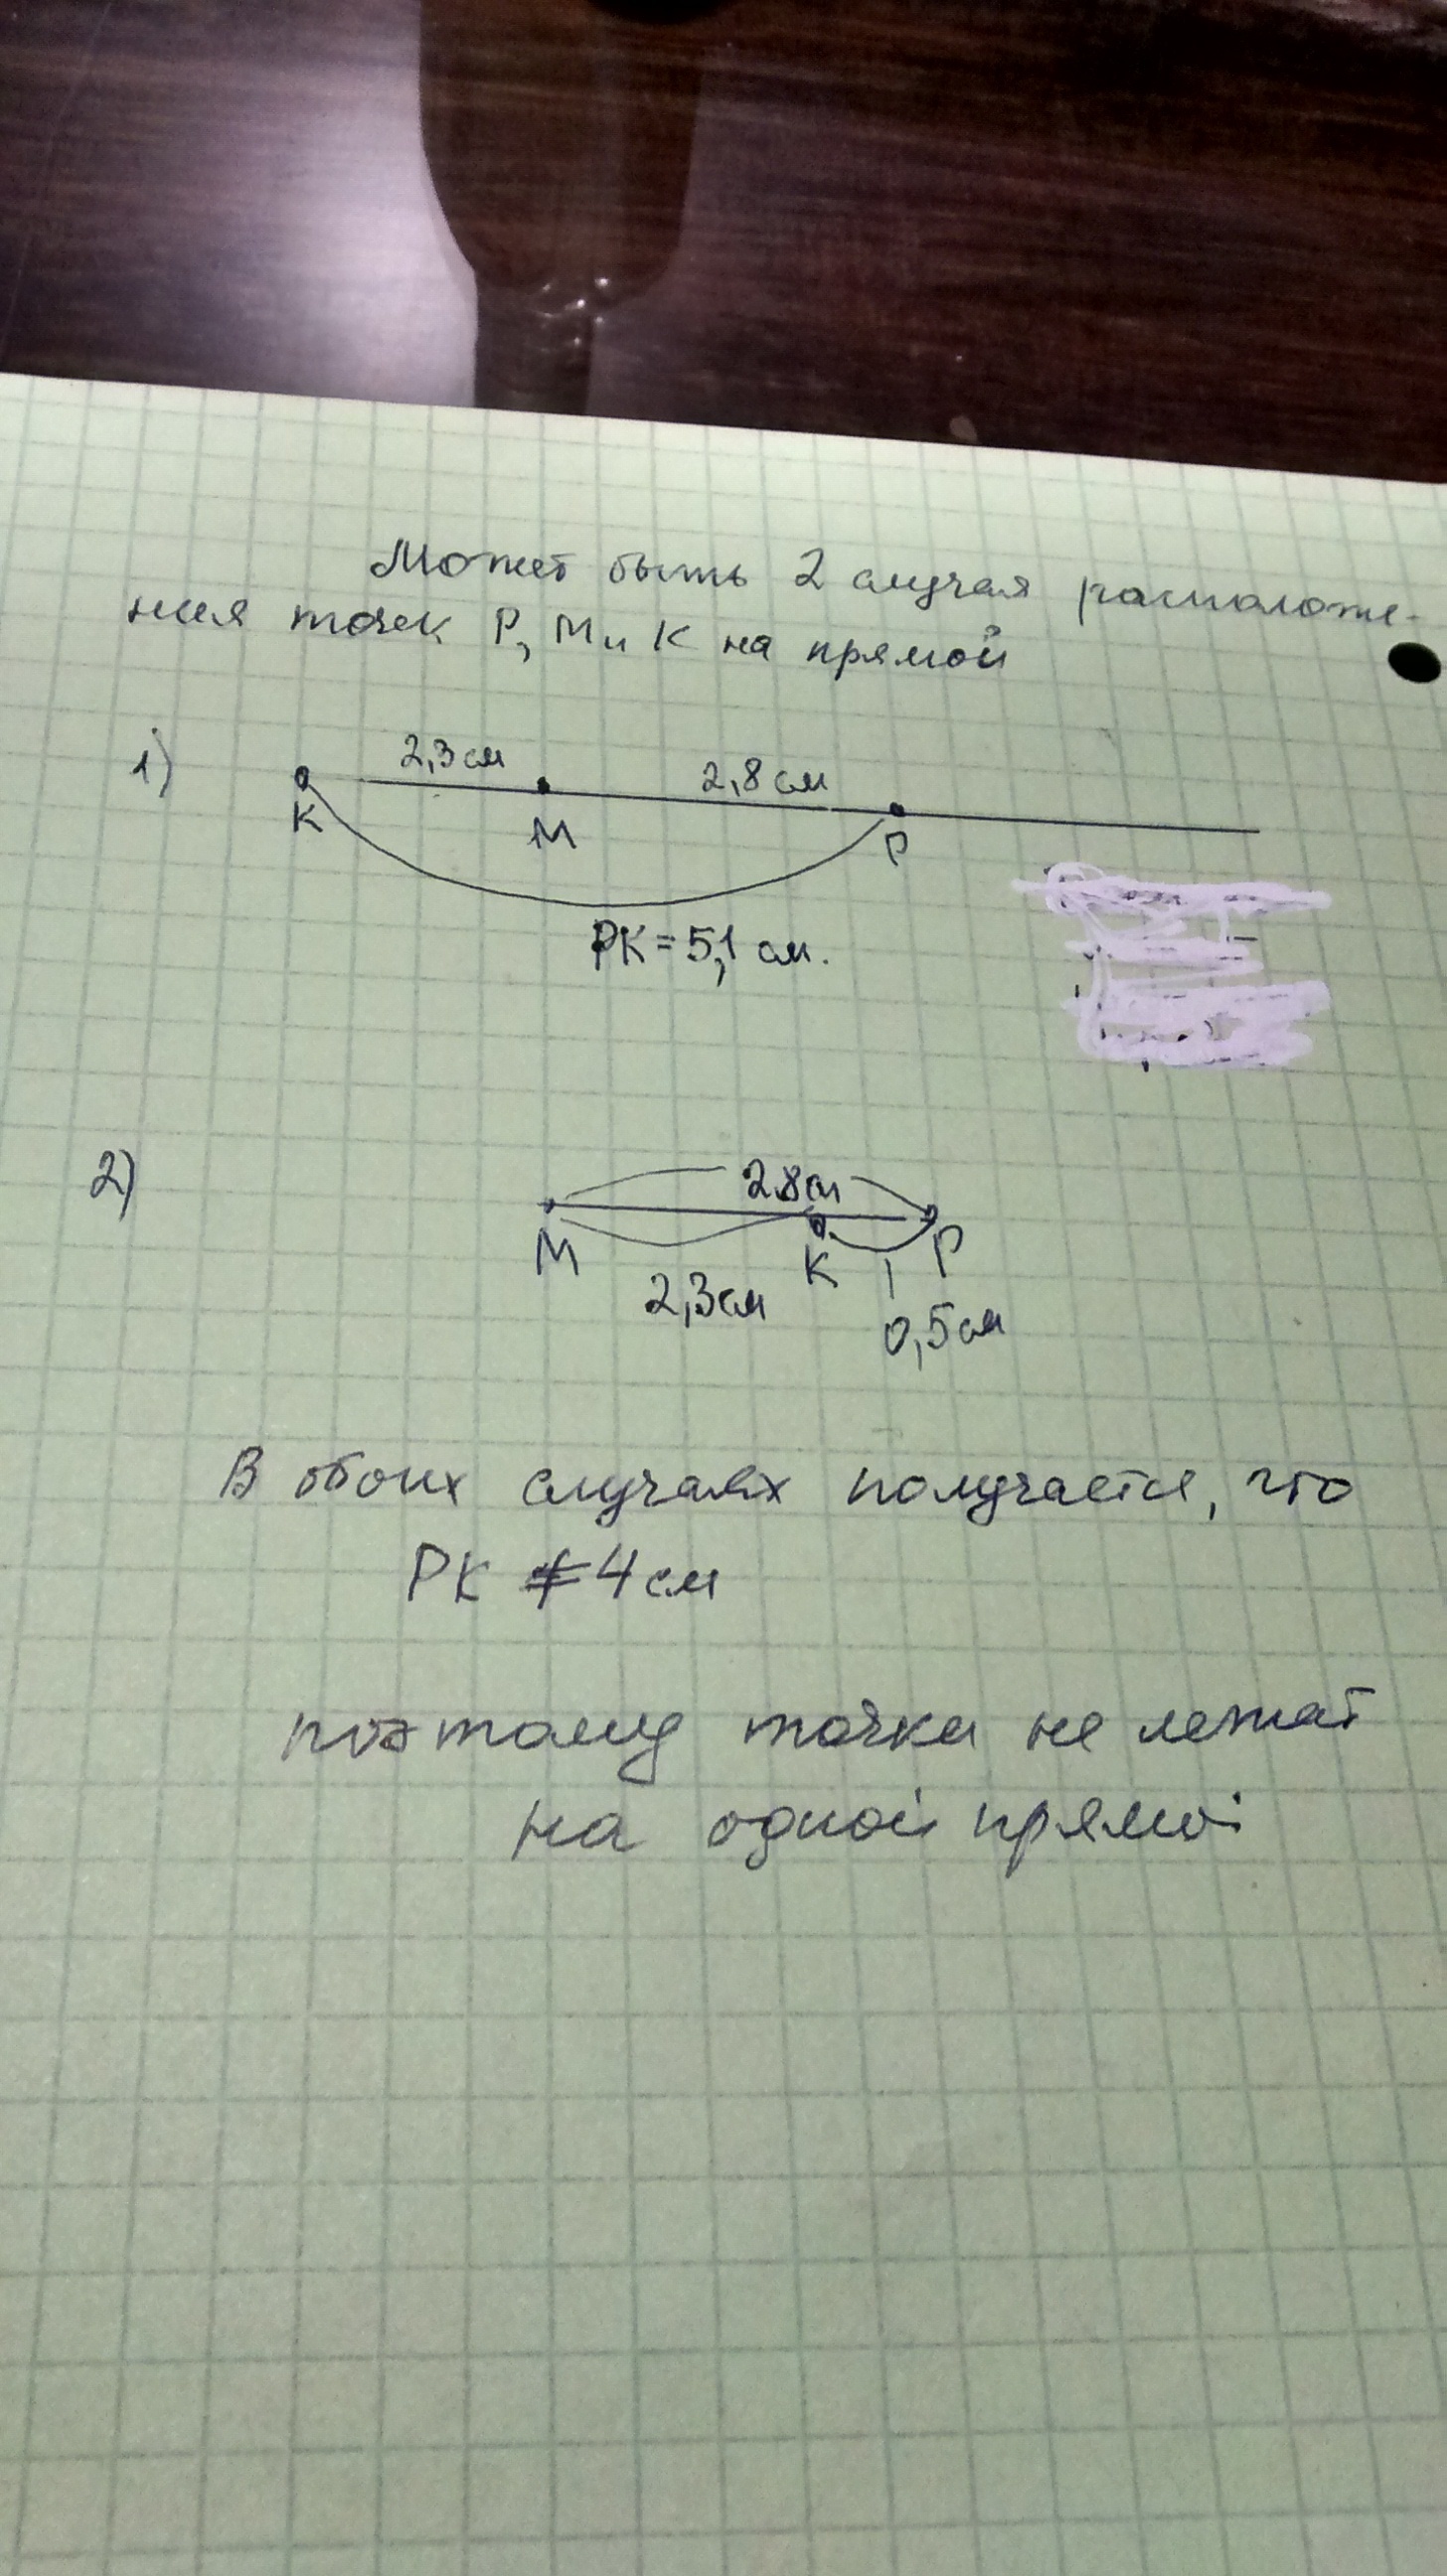 Может быть 2 случая расположе-
ния точек P, M и K на прямой
1)
2,3 см
2,8 см
K
M
P
PK = 5,1 см.
2)
2,8 см
M
K
P
2,3 см
0,5 см
В обоих случаях получается, что
PK ≠ 4 см
поэтому точки не лежат
на одной прямой